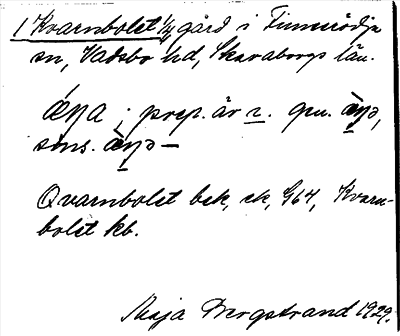 1 Kvarnbolet 1/4 gård i Finnerödja
sn, Vadsbo hd, Skaraborgs län.
áŋa ; prep. är 2. gm. àŋə,
sms. àŋə —
Qvarnbolet bek, ek, G64, Kvarn-
bolet kb.
Maja Bergstrand 1929.